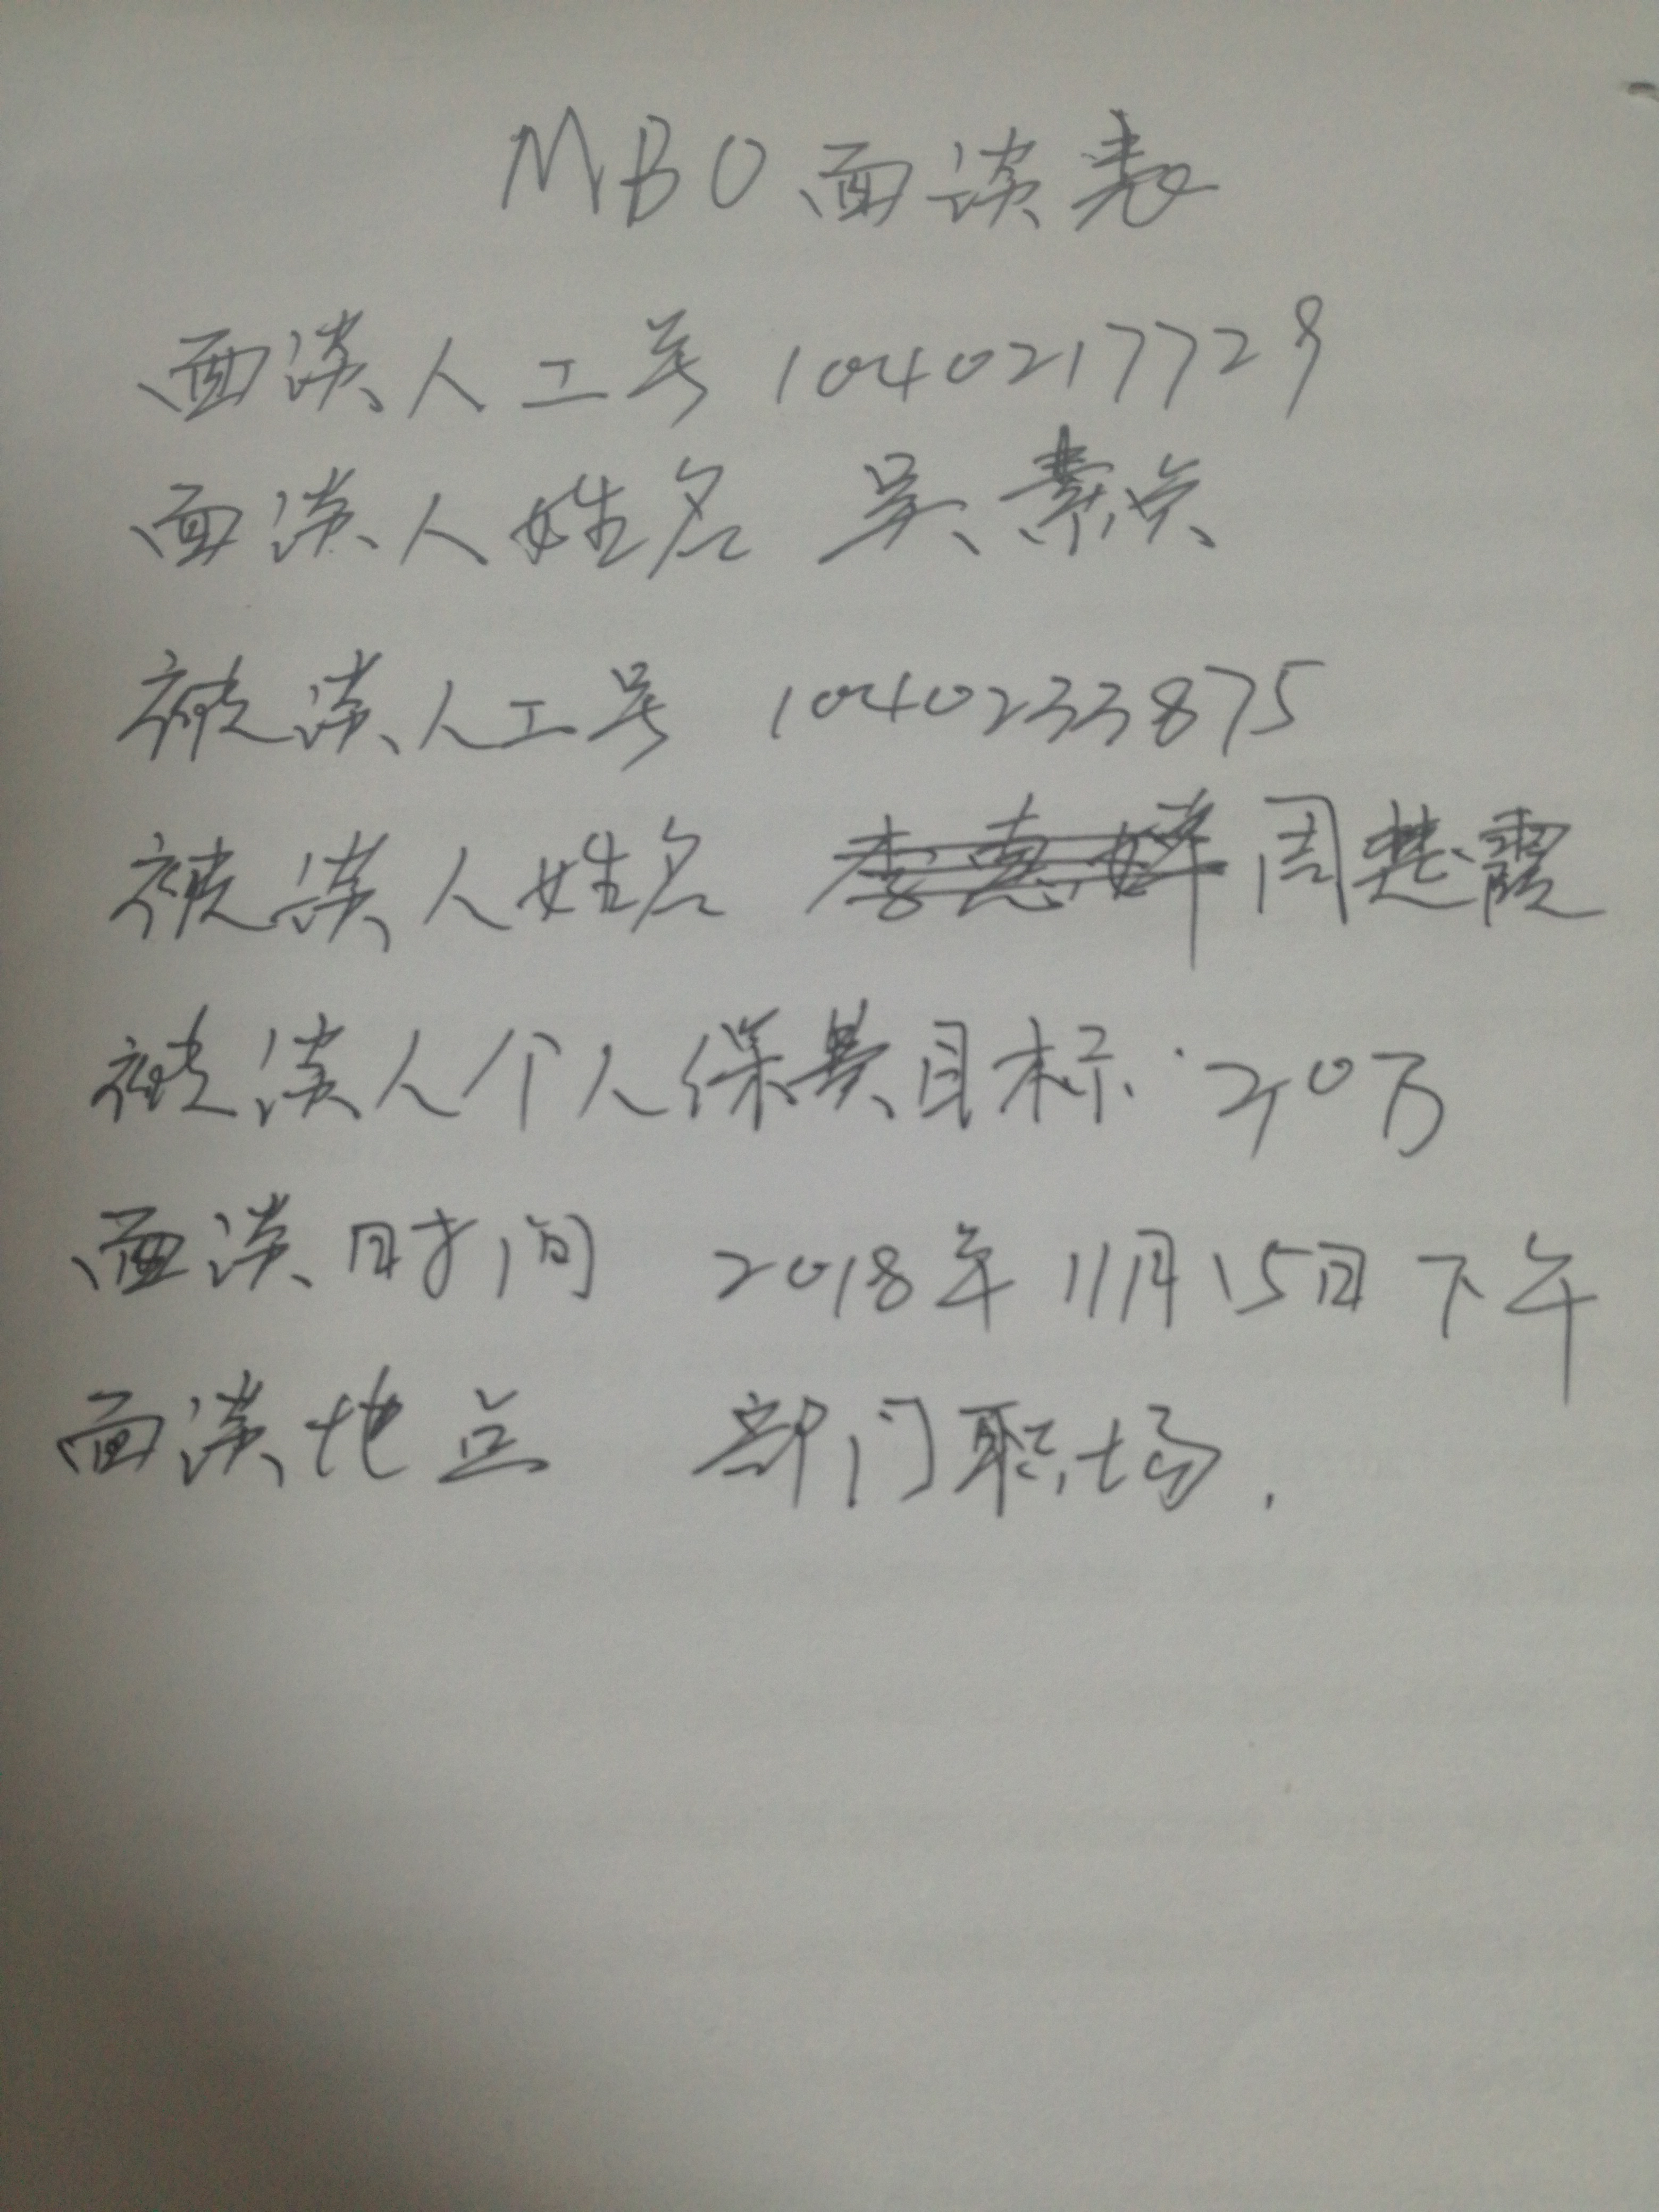 MBO面谈表
面谈人工号 1040217729
面谈人姓名 吴素贞
被谈人工号 1040233875
被谈人姓名 李惠婵 周楚霞
被谈人个人保费目标:20万
面谈时间 2018年11月15日下午
面谈地点 部门职场.